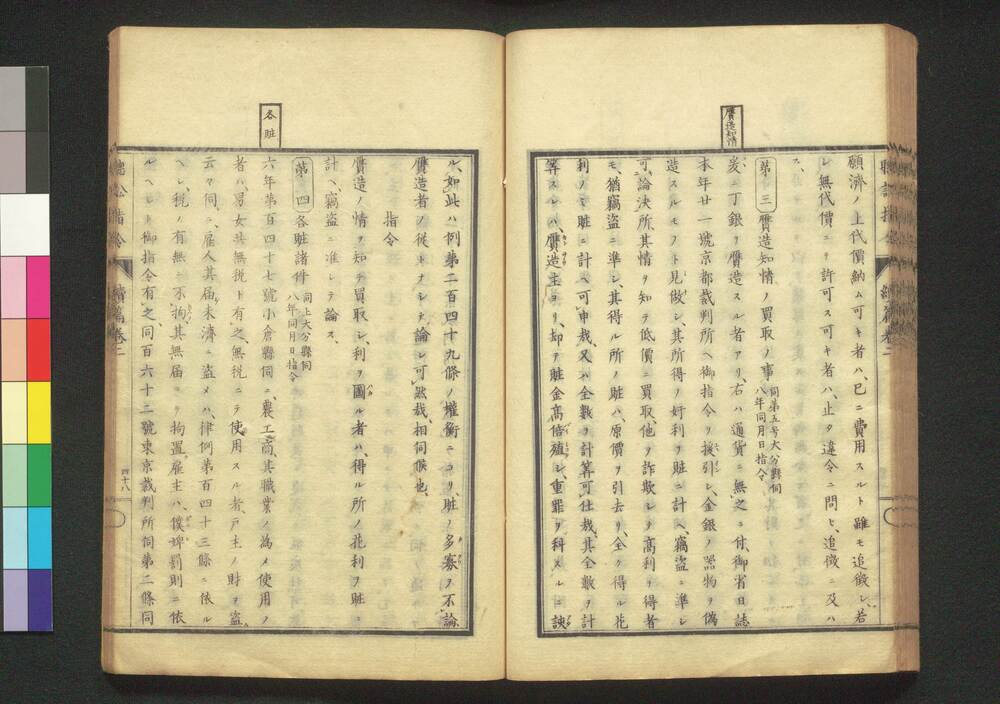 贋造知情
願濟ノ上代價納ム可キ者ハ、已ニ費用スルト雖モ追徵シ、若
シ無代價ニテ許可ス可キ者ハ、止タ違令ニ問ヒ、追徵ニ及ハ
ス、
第三 贋造知情ノ買取ノ事 同第五号大分縣伺 八年同月日指令
爰ニ丁銀ヲ贋造スル者アリ、右ハ通貨ニ無之ニ付、御省日誌
本年廿一號京都裁判所ヘ御指令ヲ援引シ、金銀ノ器物ヲ僞
造スルモノト見做シ、其所得ノ奸利ヲ贓ニ計ヘ、竊盗ニ準シ
可論決所、其情ヲ知テ低價ニ買取、他ヲ詐欺シテ高利ヲ得者
モ、猶竊盗ニ準シ、其得ル所ノ贓ハ、原價ヲ引去リ、全ク得ル花
利ノミ贓ニ計ヘ可申哉、又ハ全數ヲ計算可仕哉、其全數ヲ計
算スレハ、贋造主ヨリ、却テ贓金高倍殖シ、重罪ヲ科スルニ諌
各贓
ル、如此ハ例第二百四十九條ノ權衡ニヨリ、贓ノ多寡ヲ不論
贋造者ノ從トナシテ論シ可然哉、相伺候也、
指令
贋造ノ情ヲ知テ買取シ、利ヲ圖ル者ハ、得ル所ノ花利ヲ贓ニ
計ヘ、竊盗ニ准シテ論ス、
第四 各贓諸件 同上大分縣伺 八年同月日指令
六年第百四十七號小倉縣伺ニ、農工商、其職業ノ為メ使用ノ
者ハ、男女共無税ト有之、無税ニテ使用スル者、戸主ノ財ヲ盗
云々伺ニ、雇人其届未濟ニ盗メハ、律例第百四十三條ニ依ル
ヘシ、税ノ有無ニ不拘、其無届ニテ拘置雇主ハ、僕婢罰則ニ依
ルヘシト御指令有之、同百六十二號東京裁判所伺第二條同
聽訟指令
續篇卷二
四十八